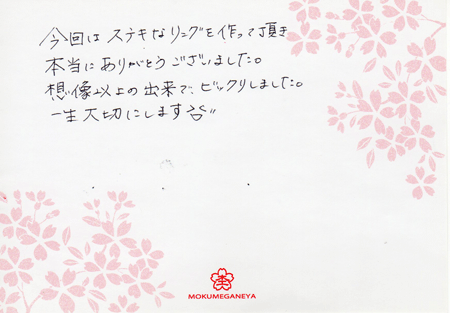 今回は ステキなリングを作って頂き
本当にありがとうございました。
想像以上の出来で、ビックリしました。
一生大切にします
MOKUMEGANEYA